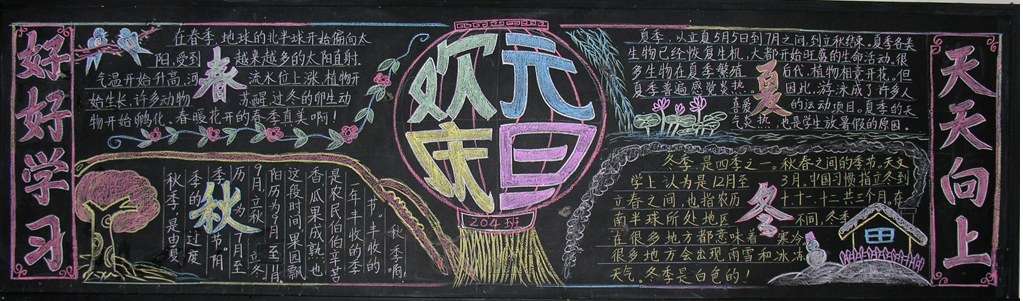 好好学习
在春季,地球的北半球开始偏向太
阳,受到 越来越多的太阳直射,
气温开始升高,河 春 流水位上涨,植物开
始生长,许多动物 苏醒,过冬的卵生动
物开始孵化。春暖花开的春季真美啊!
欢元
庆旦
204班
夏季,以立夏5月5日到7月之间,到立秋结束。夏季各类
生物已经恢复生机,大都开始旺盛的生命活动,很
多生物在夏季繁殖 后代,植物相竟开花。但
夏季普遍感觉炎热。 夏 因此,游泳成了许多人
喜爱 的运动项目,夏季的
天气炎热,也是学生放暑假的原因。
天天向上
秋季啊,
一节。丰收的
年丰收的季
是农民伯伯辛苦
香瓜果成熟,也
这段时间果园飘
阳历为9月至11月
9月,立秋 立冬
历 为 7月至
季 秋 节。阴
季的 过度
秋季,是由夏
冬季,是四季之一。秋春之间的季节。天文
学上认为是12月至 3月,中国习惯指立冬到
立春之间,也指农历 冬 十、十一、十二共三个月。在
南半球所处地区 不同,冬季
在很多地方都意味着 寒冷。
很多地方会出现雨雪和冰冻
天气。冬季是白色的!